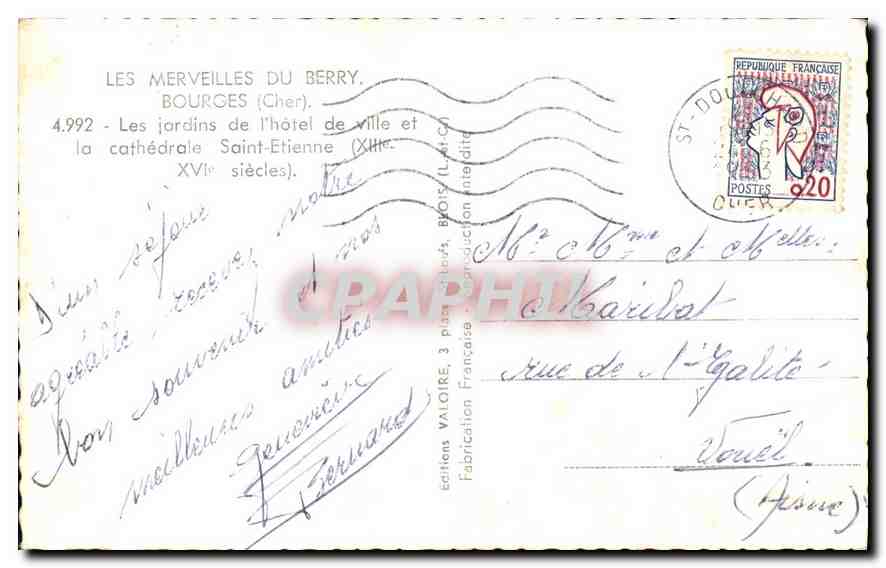 LES MERVEILLES DU BERRY.
BOURGES (Cher).
4.992 - Les jardins de l'hôtel de ville et
la cathédrale Saint-Etienne (XIIIe-
XVIe siècles).
D'un séjour
agréable, recevez notre
bon souvenir et nos
meilleures amitiés
Geneviève
Bernard
Editions VALOIRE, 3 place St-Louis, BLOIS (L.-et-C.)
Fabrication Française - Reproduction interdite
REPUBLIQUE FRANÇAISE
POSTES 0,20
ST-DOU CH
CHER
Mr Mme et Melles
Maribat
rue de l'Egalité
Vouël
(Aisne)
CPAPHIL